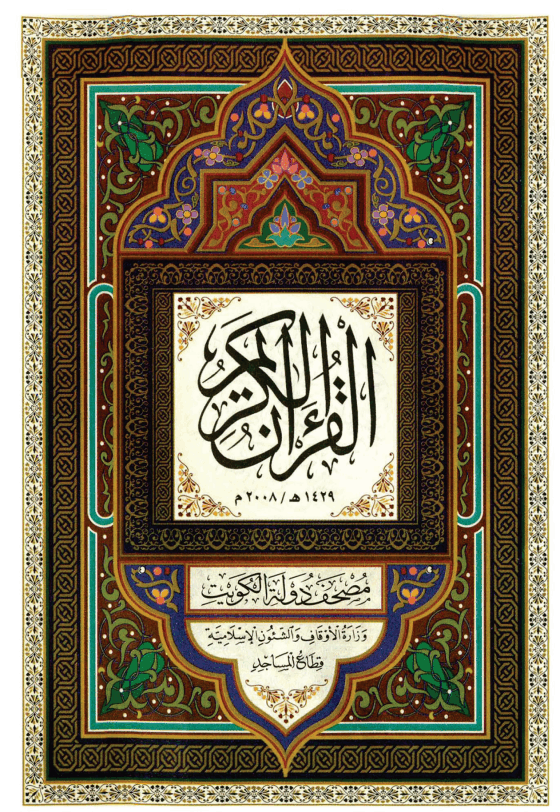 القُرْءَانُ الكَرِيمُ
١٤٢٩ هـ / ٢٠٠٨ م
مُصْحَفُ دَوْلَةِ الكُوَيْتِ
وَزَارَةُ الأَوْقَافِ وَالشُّئُونِ الإِسْلَامِيَّةِ
قِطَاعُ المَسَاجِدِ